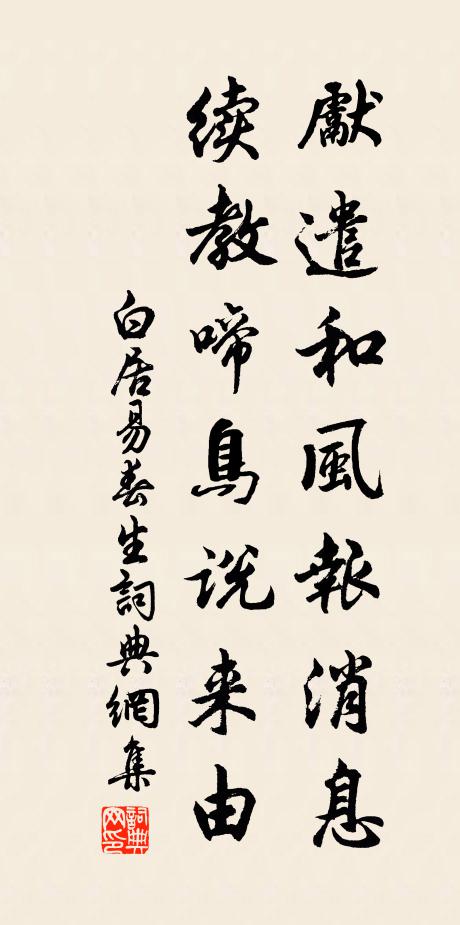 獻遣和風報消息
续教啼鳥说来由
白居易春生詞典網集
詞典
网印